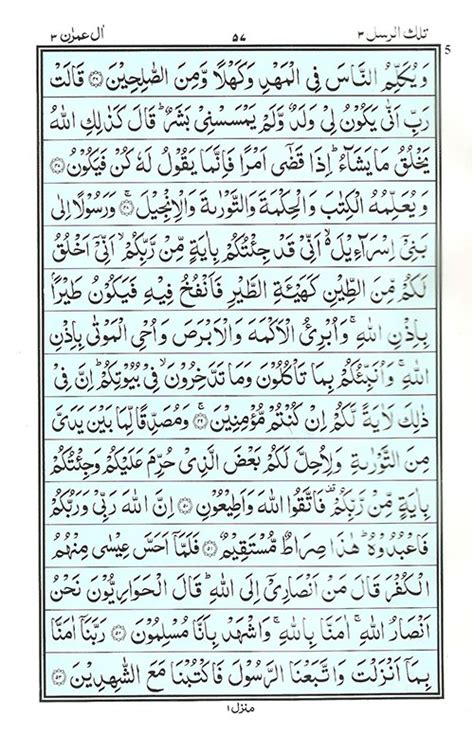 تلك الرسل ٣ ٥٧ اٰل عمرٰن ٣
5
وَيُكَلِّمُ النَّاسَ فِي الْمَهْدِ وَكَهْلًا وَّمِنَ الصّٰلِحِيْنَ ﴿٤٦﴾ قَالَتْ
رَبِّ اَنّٰى يَكُوْنُ لِيْ وَلَدٌ وَّلَمْ يَمْسَسْنِيْ بَشَرٌ ؕ قَالَ كَذٰلِكِ اللّٰهُ
يَخْلُقُ مَا يَشَآءُ ؕ اِذَا قَضٰٓى اَمْرًا فَاِنَّمَا يَقُوْلُ لَهٗ كُنْ فَيَكُوْنُ ﴿٤٧﴾
وَيُعَلِّمُهُ الْكِتٰبَ وَالْحِكْمَةَ وَالتَّوْرٰىةَ وَالْاِنْجِيْلَ ﴿٤٨﴾ وَرَسُوْلًا اِلٰى
بَنِيْٓ اِسْرَآءِيْلَ ۙ اَنِّيْ قَدْ جِئْتُكُمْ بِاٰيَةٍ مِّنْ رَّبِّكُمْ ۙ اَنِّيْٓ اَخْلُقُ
لَكُمْ مِّنَ الطِّيْنِ كَهَيْـَٔةِ الطَّيْرِ فَاَنْفُخُ فِيْهِ فَيَكُوْنُ طَيْرًاۢ
بِاِذْنِ اللّٰهِ ۚ وَاُبْرِئُ الْاَكْمَهَ وَالْاَبْرَصَ وَاُحْيِ الْمَوْتٰى بِاِذْنِ
اللّٰهِ ۚ وَاُنَبِّئُكُمْ بِمَا تَاْكُلُوْنَ وَمَا تَدَّخِرُوْنَ ۙ فِيْ بُيُوْتِكُمْ ؕ اِنَّ فِيْ
ذٰلِكَ لَاٰيَةً لَّكُمْ اِنْ كُنْتُمْ مُّؤْمِنِيْنَ ﴿٤٩﴾ وَمُصَدِّقًا لِّمَا بَيْنَ يَدَيَّ
مِنَ التَّوْرٰىةِ وَلِاُحِلَّ لَكُمْ بَعْضَ الَّذِيْ حُرِّمَ عَلَيْكُمْ وَجِئْتُكُمْ
بِاٰيَةٍ مِّنْ رَّبِّكُمْ ۟ فَاتَّقُوا اللّٰهَ وَاَطِيْعُوْنِ ﴿٥٠﴾ اِنَّ اللّٰهَ رَبِّيْ وَرَبُّكُمْ
فَاعْبُدُوْهُ ؕ هٰذَا صِرَاطٌ مُّسْتَقِيْمٌ ﴿٥١﴾ فَلَمَّآ اَحَسَّ عِيْسٰى مِنْهُمُ
الْكُفْرَ قَالَ مَنْ اَنْصَارِيْٓ اِلَى اللّٰهِ ؕ قَالَ الْحَوَارِيُّوْنَ نَحْنُ
اَنْصَارُ اللّٰهِ ۚ اٰمَنَّا بِاللّٰهِ ۚ وَاشْهَدْ بِاَنَّا مُسْلِمُوْنَ ﴿٥٢﴾ رَبَّنَآ اٰمَنَّا
بِمَآ اَنْزَلْتَ وَاتَّبَعْنَا الرَّسُوْلَ فَاكْتُبْنَا مَعَ الشّٰهِدِيْنَ ﴿٥٣﴾
منزل ١